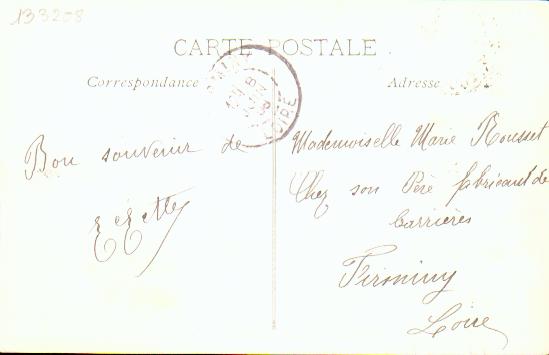 133208
CARTE POSTALE
Correspondance
Adresse
LOIRE
Bon souvenir de
Mademoiselle Marie Rousset
Chez son Père fabricant de
barrières
Firminy
Loire